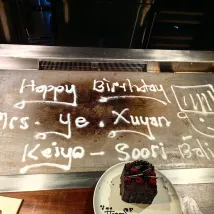 Happy Birthday
Mrs. Ye. Xuyan
Keiyo - Soori Bali